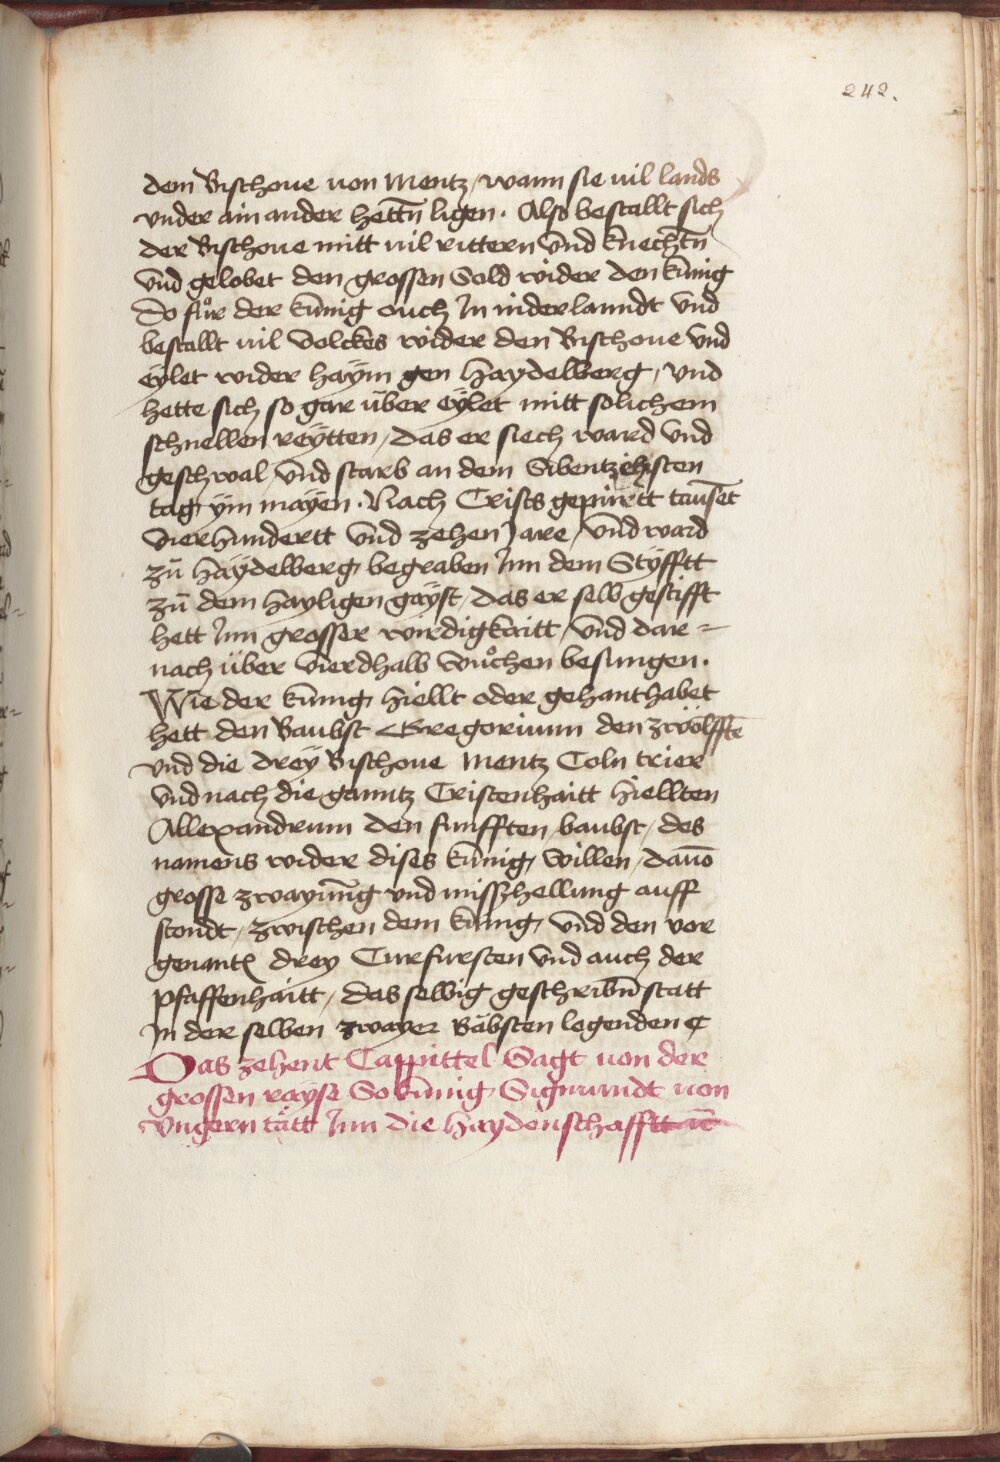 242.
dem Bischoue uon Mentz / wann sie uil lands
vnder ain ander hettn̄ ligen . Also bestallt sich
der Bischoue mitt uil rittern vnd knechtn̄
vnd gelobet den grossen Sold wider den kúnig
Do fůr der kúnig ouch Jn niderlanndt vnd
bestallt uil volckes wider den Bischoue vnd
eÿlet wider haÿm gen haydelberg / vnd
hette sich so gar über eÿlet mitt solichem
schnellen reÿtten / das er siech ward vnd
geschwal / vnd starb an dem Sibentzehisten
tag ÿm maÿen . Nach Crists gepürtt tausēt
vierhundertt vnd zehen Jare / vnd ward
zü haÿdelberg begraben Jnn dem Stÿfftt
zü dem hayligen gäyst / das er selb gestifft
hett Jnn grosser wirdigkaitt / vnd dar =
nach über vierdhalb wůchen besungen .
Wie der kúnig hiellt oder gehanthabet
hett den Baubst Gregorium den zwölfftē
vnd die dreÿ Bischoue Mentz Coln trier
vnd nach die ganntz Cristenhaitt hiellten
Allexandrum den funfften baubst / des
namens wider dises kúnig willen / dauō
grosse zwayūng vnd misszhellung auff
stondt / zwischen dem kúnig / vnd den vor
genantē drey Curfursten vnd auch der
pfaffenhaitt / das selbig geschribn̄ statt
Jn der selben zwayer Bäbsten legenden ¢
Das zehent Cappittel Sagt uon der
grossen raÿse So kúnig Sigmundt uon
Vngern tätt Jnn die haydenschafftt